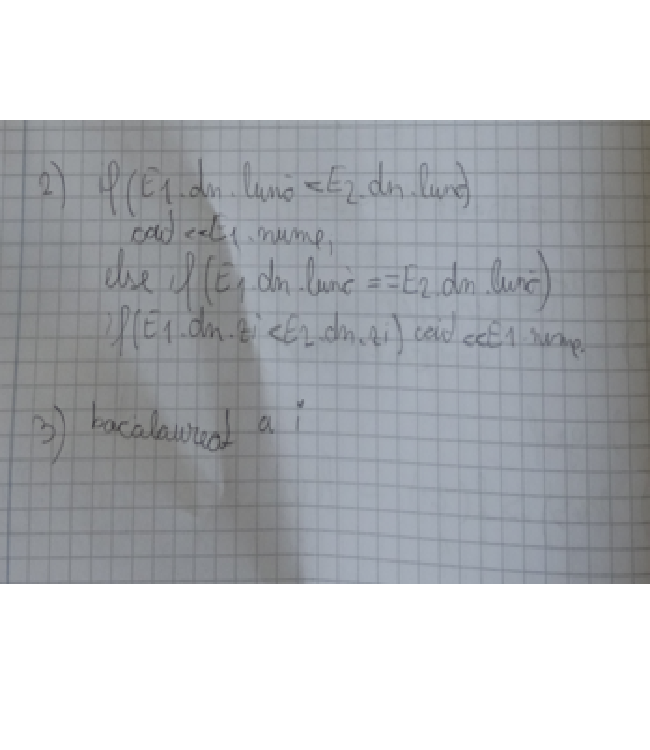 2) if(E1.dn.luna<E2.dn.luna)
cout<<E1.nume;
else if(E1.dn.luna==E2.dn.luna)
if(E1.dn.zi<E2.dn.zi) cout<<E1.nume.
3) bacalaureat a i